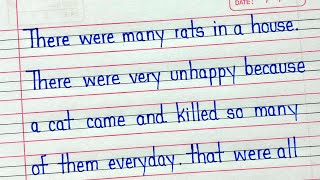 DATE:
There were many rats in a house.
There were very unhappy because
a cat came and killed so many
of them everyday. that were all